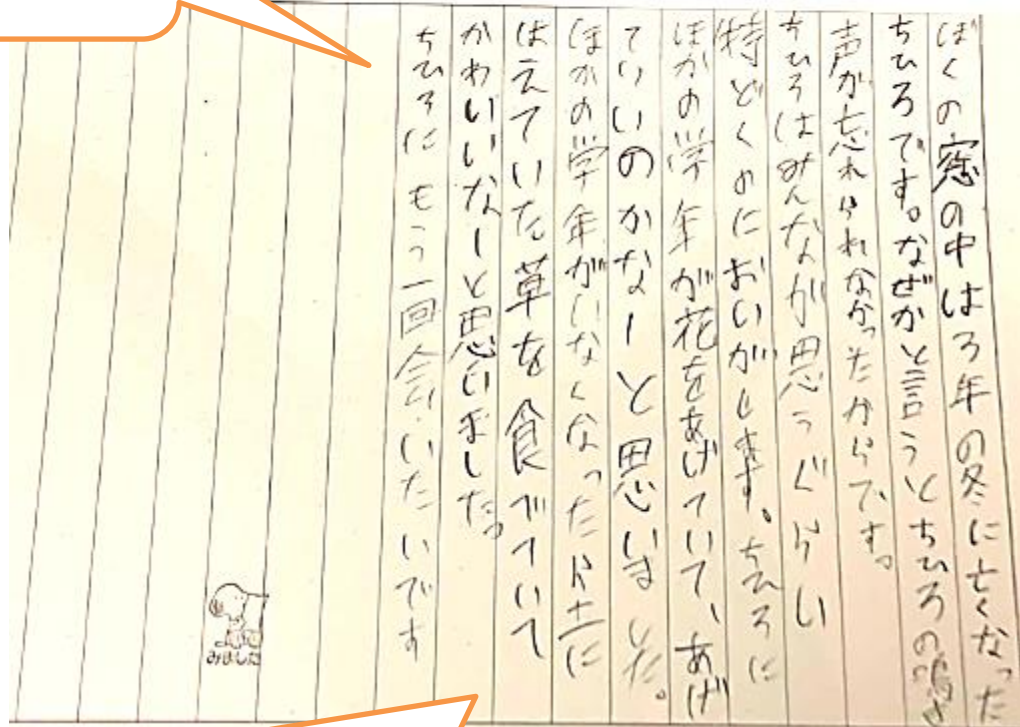 ぼくの窓の中は3年の冬に亡くなった
ちひろです。なぜかと言うとちひろの鳴き
声が忘れられれなかったからです。
ちひろはみんなが思うぐらい
特どくのにおいがします。ちひろに
ほかの学年が花をあげていて、あげ
ていいのかなーと思いました。
ほかの学年がいなくなったら土に
はえていた草を食べていて
かわいいなーと思いました。
ちひろにもう一回会いいたいです
みました